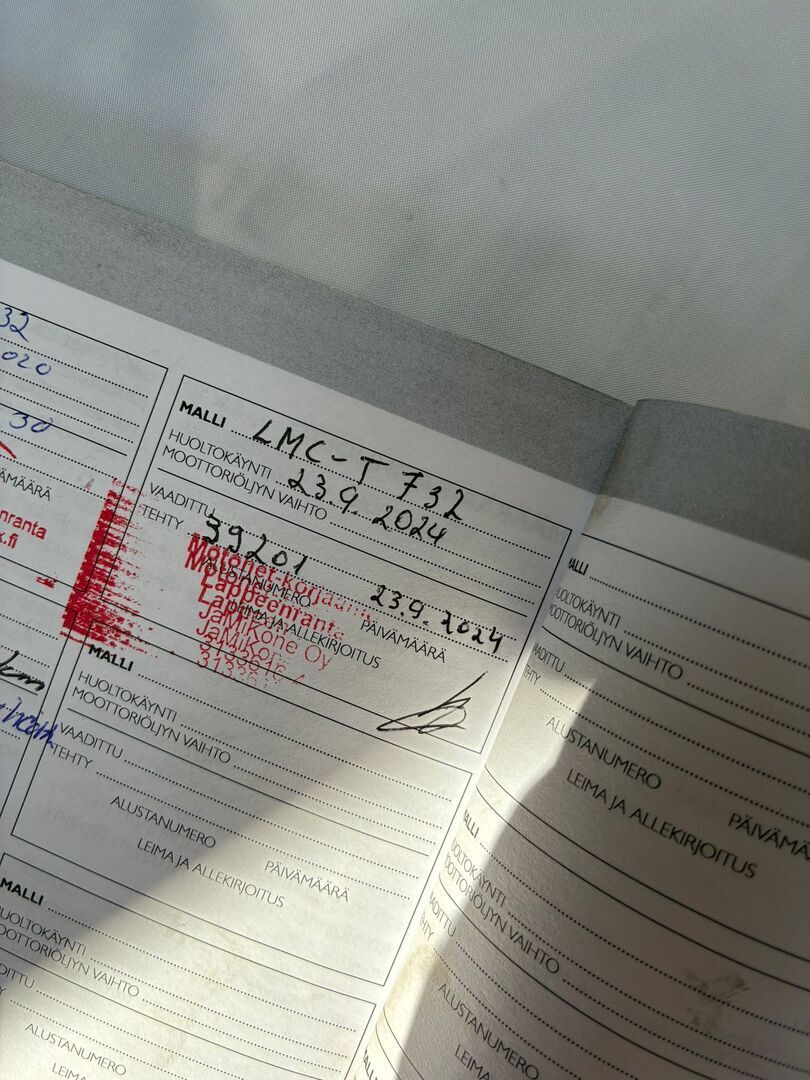 32
020
30
ÄMÄÄRÄ
nranta
k.fi
km
MALLI LMC-T 732
HUOLTOKÄYNTI
MOOTTORIÖLJYN VAIHTO 23.9. 2024
VAADITTU
TEHTY 39201
ALUSTANUMERO PÄIVÄMÄÄRÄ 23.9.2024
LEIMA JA ALLEKIRJOITUS
Motonet-korjaamo
Lappeenranta
JaMiKone Oy
MALLI
HUOLTOKÄYNTI
MOOTTORIÖLJYN VAIHTO
VAADITTU
TEHTY
ALUSTANUMERO PÄIVÄMÄÄRÄ
LEIMA JA ALLEKIRJOITUS
MALLI
HUOLTOKÄYNTI
MOOTTORIÖLJYN VAIHTO
DITTU
ALUSTANUMERO
LEIMA
ALLI
UOLTOKÄYNTI
OOTTORIÖLJYN VAIHTO
VAADITTU
EHTY
ALUSTANUMERO PÄIVÄMÄÄ
LEIMA JA ALLEKIRJOITUS
ALLI
UOLTOKÄYNTI
OOTTORIÖLJYN VAIHTO
AADITTU
HTY
ALUSTANUMERO
LEIMA